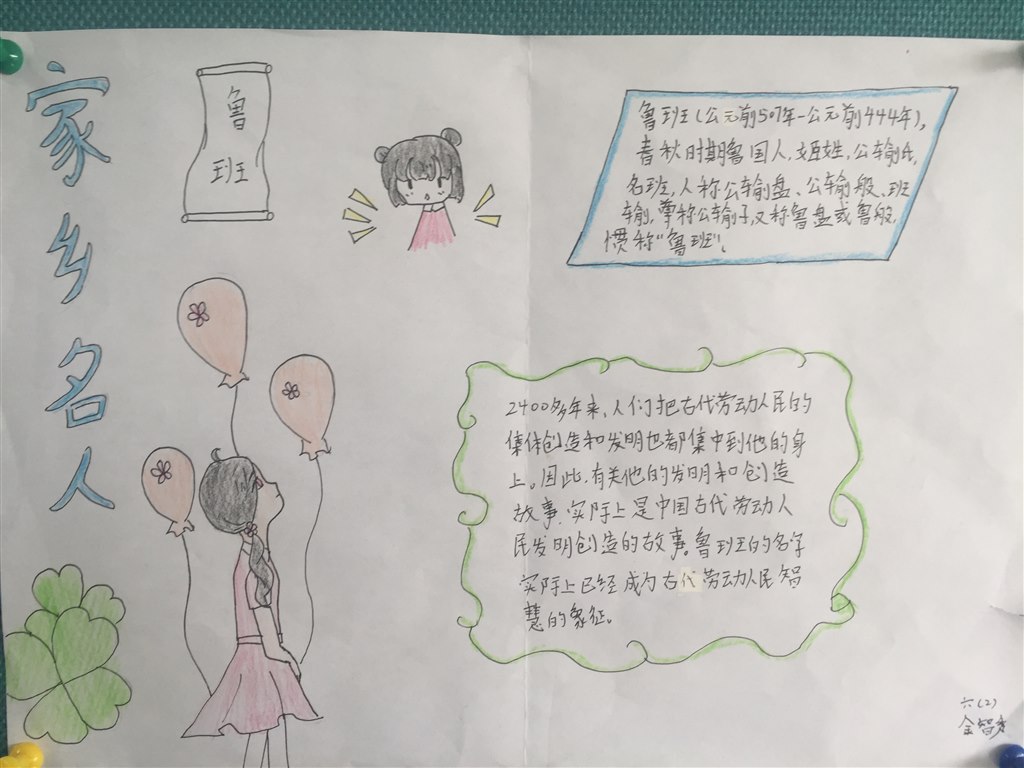 家乡名人
鲁班
鲁班(公元前507年-公元前444年),
春秋时期鲁国人,姬姓,公输氏,
名班,人称公输盘、公输般、班
输,尊称公输子,又称鲁盘或鲁般,
惯称"鲁班"。
2400多年来,人们把古代劳动人民的
集体创造和发明也都集中到他的身
上。因此,有关他的发明和创造
故事,实际上是中国古代劳动人
民发明创造的故事。鲁班的名字
实际上已经成为古代劳动人民智
慧的象征。
六(2)
金智